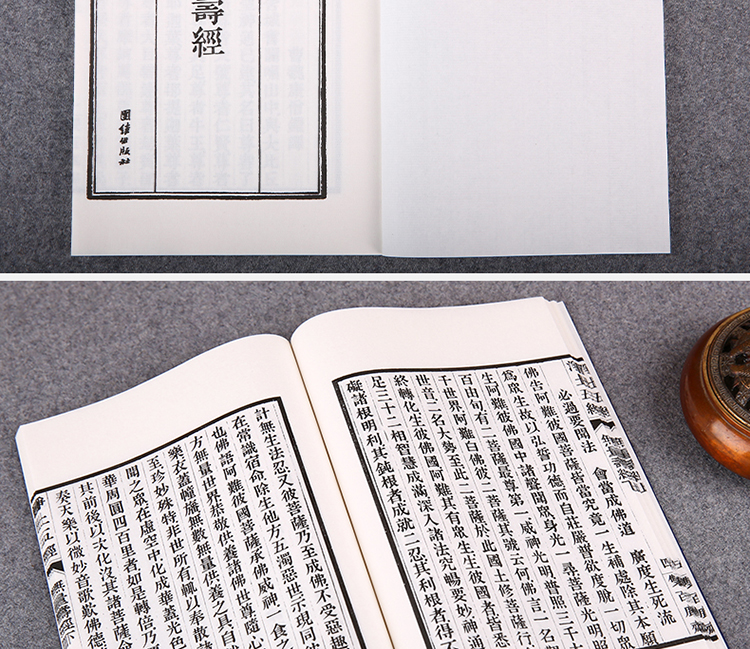 壽經
團结出版社
必過要聞法 會當成佛道 廣度生死流
佛告阿難彼國菩薩皆當究竟一生補處除其本願
爲衆生故以弘誓功德而自莊嚴普欲度脫一切衆
生阿難彼佛國中諸聲聞衆身光一尋菩薩光明照
百由旬有二菩薩最尊第一威神光明普照三千大
千世界阿難白佛彼二菩薩其號云何佛言一名觀
世音二名大勢至此二菩薩於此國土修菩薩行
終轉化生彼佛國阿難其有衆生生彼國者皆悉
足三十二相智慧成滿深入諸法究暢要妙神通
礙諸根明利其鈍根者成就二忍其利根者得不
計無生法忍又彼菩薩乃至成佛不受惡趣
在常識宿命除生他方五濁惡世示現同
也佛語阿難彼國菩薩承佛威神一食之
方無量世界恭敬供養諸佛世尊隨心
樂衣蓋幢幡無數無量供養之具自
至珍妙殊特非世所有輒以奉散
間之衆在虛空中化成華蓋光色
華周圓四百里者如是轉倍乃
其前後以次化沒其諸菩薩僉
奏天樂以微妙音歌歎佛德